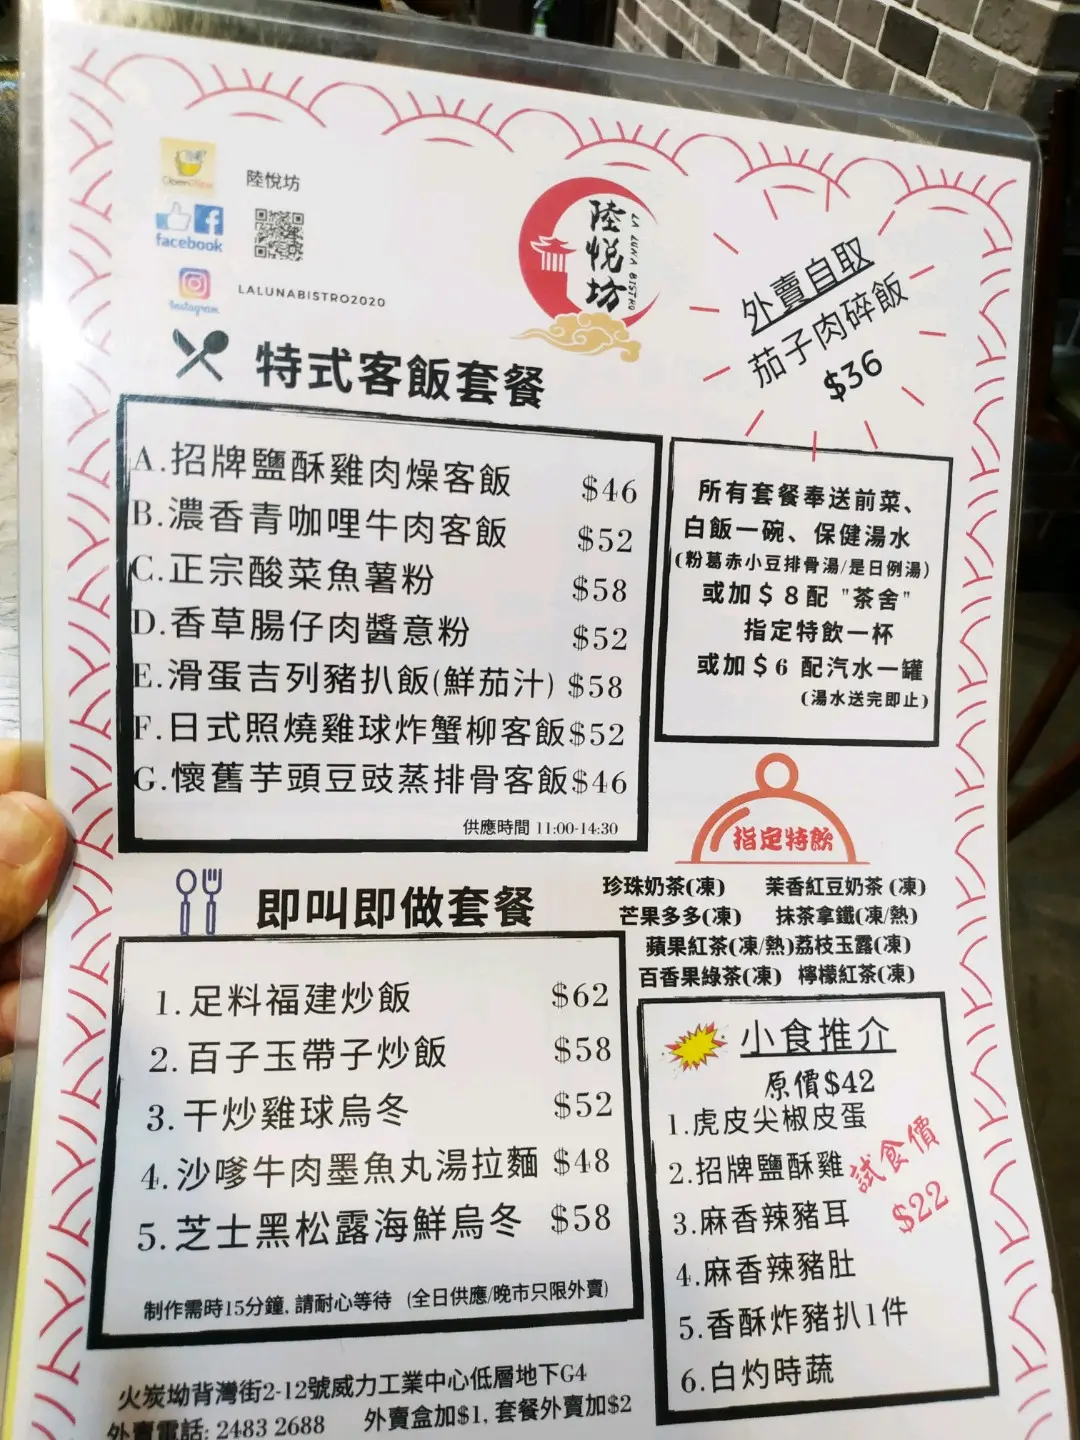 OpenRice
陸悅坊
facebook
Instagram
LALUNABISTRO2020
陸悅坊
LA LUNA BISTRO
外賣自取
茄子肉碎飯
$36
特式客飯套餐
A.招牌鹽酥雞肉燥客飯 $46
B.濃香青咖哩牛肉客飯 $52
C.正宗酸菜魚薯粉 $58
D.香草腸仔肉醬意粉 $52
E.滑蛋吉列豬扒飯(鮮茄汁) $58
F.日式照燒雞球炸蟹柳客飯 $52
G.懷舊芋頭豆豉蒸排骨客飯 $46
供應時間 11:00-14:30
所有套餐奉送前菜、
白飯一碗、保健湯水
(粉葛赤小豆排骨湯/是日例湯)
或加$8配 "茶舍"
指定特飲一杯
或加$6 配汽水一罐
(湯水送完即止)
指定特飲
珍珠奶茶(凍) 茉香紅豆奶茶 (凍)
芒果多多(凍) 抹茶拿鐵(凍/熱)
蘋果紅茶(凍/熱)荔枝玉露(凍)
百香果綠茶(凍) 檸檬紅茶(凍)
即叫即做套餐
1.足料福建炒飯 $62
2.百子玉帶子炒飯 $58
3.干炒雞球烏冬 $52
4.沙嗲牛肉墨魚丸湯拉麵 $48
5.芝士黑松露海鮮烏冬 $58
制作需時15分鐘, 請耐心等待 (全日供應/晚市只限外賣)
小食推介
原價$42
1.虎皮尖椒皮蛋
2.招牌鹽酥雞
3.麻香辣豬耳
4.麻香辣豬肚
5.香酥炸豬扒1件
6.白灼時蔬
試食價
$22
火炭坳背灣街2-12號威力工業中心低層地下G4
外賣電話: 2483 2688 外賣盒加$1, 套餐外賣加$2